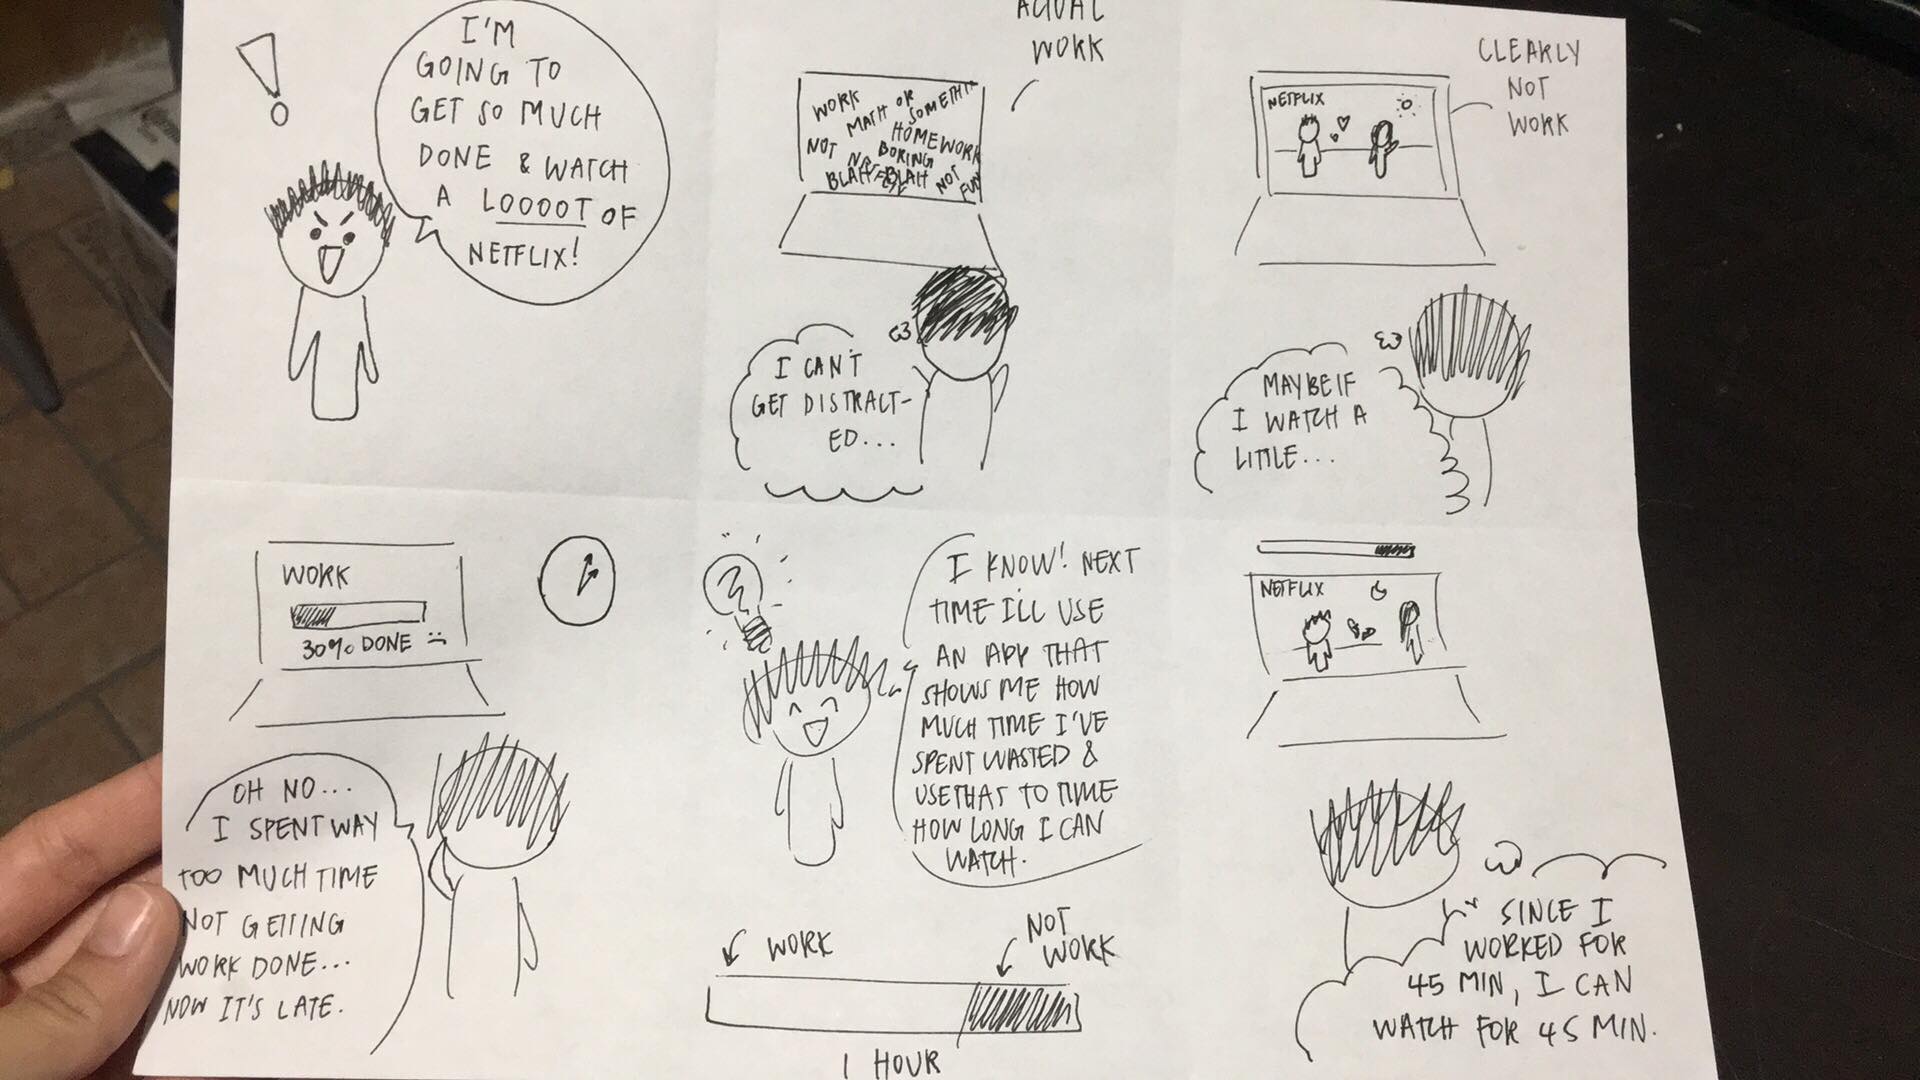 I'M
GOING TO
GET SO MUCH
DONE & WATCH
A LOOOOT OF
NETFLIX!
ACTUAL
WORK
WORK
MATH OR SOMETHIN
HOMEWORK
NOT NETFLIX
BORING
BLAH BLAH
NOT FUN
I CAN'T
GET DISTRACT-
ED...
CLEARLY
NOT
WORK
NETFLIX
MAYBE IF
I WATCH A
LITTLE...
WORK
30% DONE :(
OH NO...
I SPENT WAY
TOO MUCH TIME
NOT GETTING
WORK DONE...
NOW IT'S LATE.
I KNOW! NEXT
TIME I'LL USE
AN APP THAT
SHOWS ME HOW
MUCH TIME I'VE
SPENT WASTED &
USE THAT TO TIME
HOW LONG I CAN
WATCH.
WORK
NOT
WORK
1 HOUR
NETFLIX
SINCE I
WORKED FOR
45 MIN, I CAN
WATCH FOR 45 MIN.